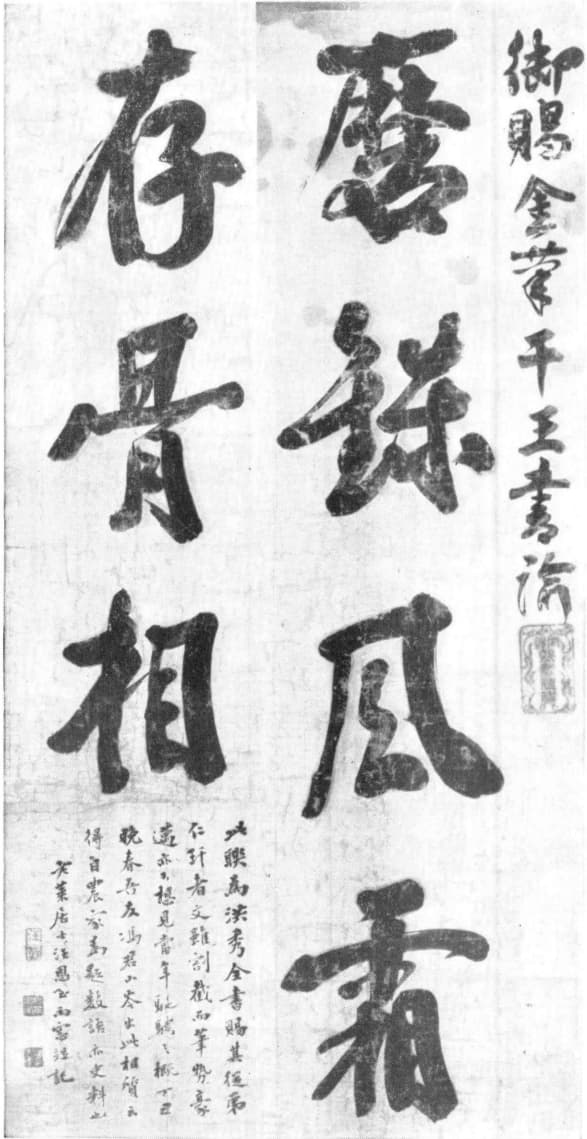 御賜金筆干王書諭
磨鍊風霜
存骨相
此聯為洪秀全書賜其從弟
仁玕者文雖割截而筆勢豪
邁亦可想見當年馳騁之概丁丑
晚春吾友馮君小岑出此相質云
得自農家為題數語亦史料也
居士汪恩雨窗記